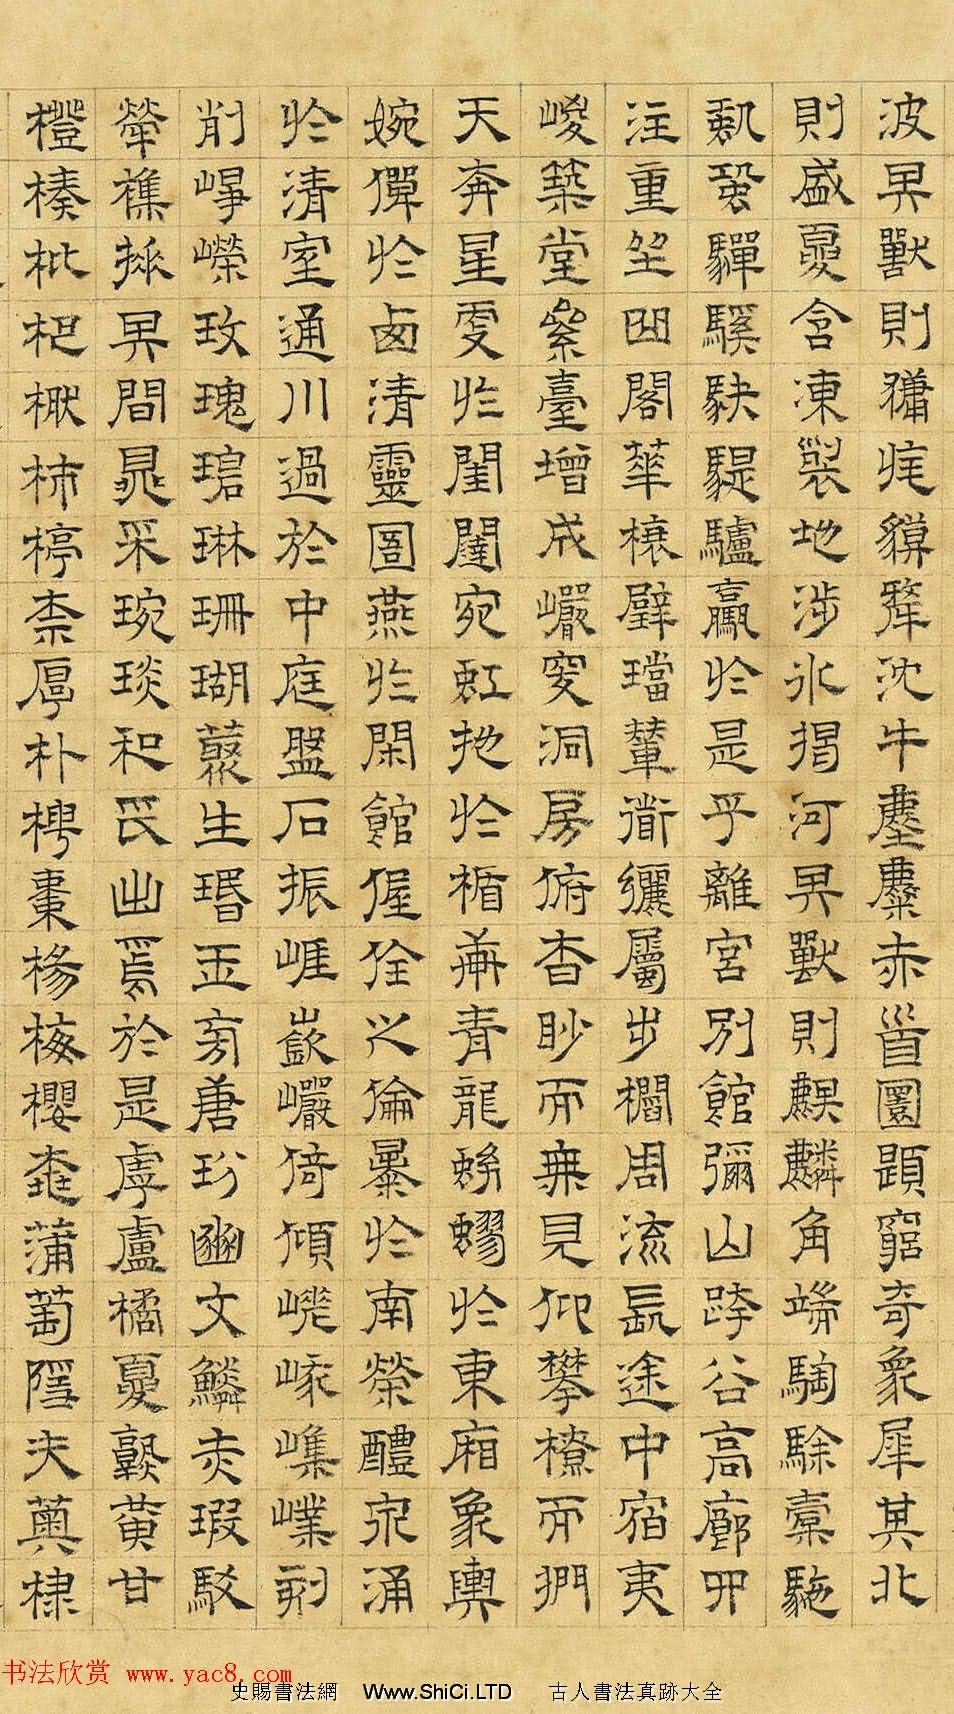 波其獸則㺎旄貘犛沈牛麈麋赤首圜題窮奇象犀其北
則盛夏含凍裂地涉冰揭河其獸則麒麟角端騊駼橐駞
駃騠驢驘於是乎離宮別館彌山跨谷高廊四
注重坐曲閣華榱璧璫輦道纚屬步櫩周流長途中宿夷
嵕築堂絫臺增成巖窔洞房俯杳眇而無見仰攀橑而捫
天奔星更於閨闥宛虹扡於楯軒青龍蚴蟉於東廂象輿
婉僤於西清靈圄燕於閒館偓佺之倫暴於南榮醴泉涌
於清室通川過於中庭盤石振崖嶔巖倚傾嵯峨嶕嶫刻
削崢嶸玫瑰碧琳珊瑚叢生瑉玉旁唐玢豳文鱗赤瑕駁
犖雜插其間晁采琬琰和氏出焉於是乎盧橘夏孰黃甘
橙楱枇杷橪柿楟柰厚朴梬棗楊梅櫻桃蒲萄隱夫薁棣
書法欣赏 www.yac8.com
史賜書法網 Www.ShiCi.LTD 古人書法真跡大全